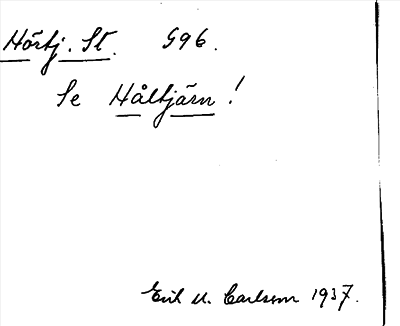 Hörtj. St. 996.
Se Håltjärn!
Erik M. Carlsson 1937.